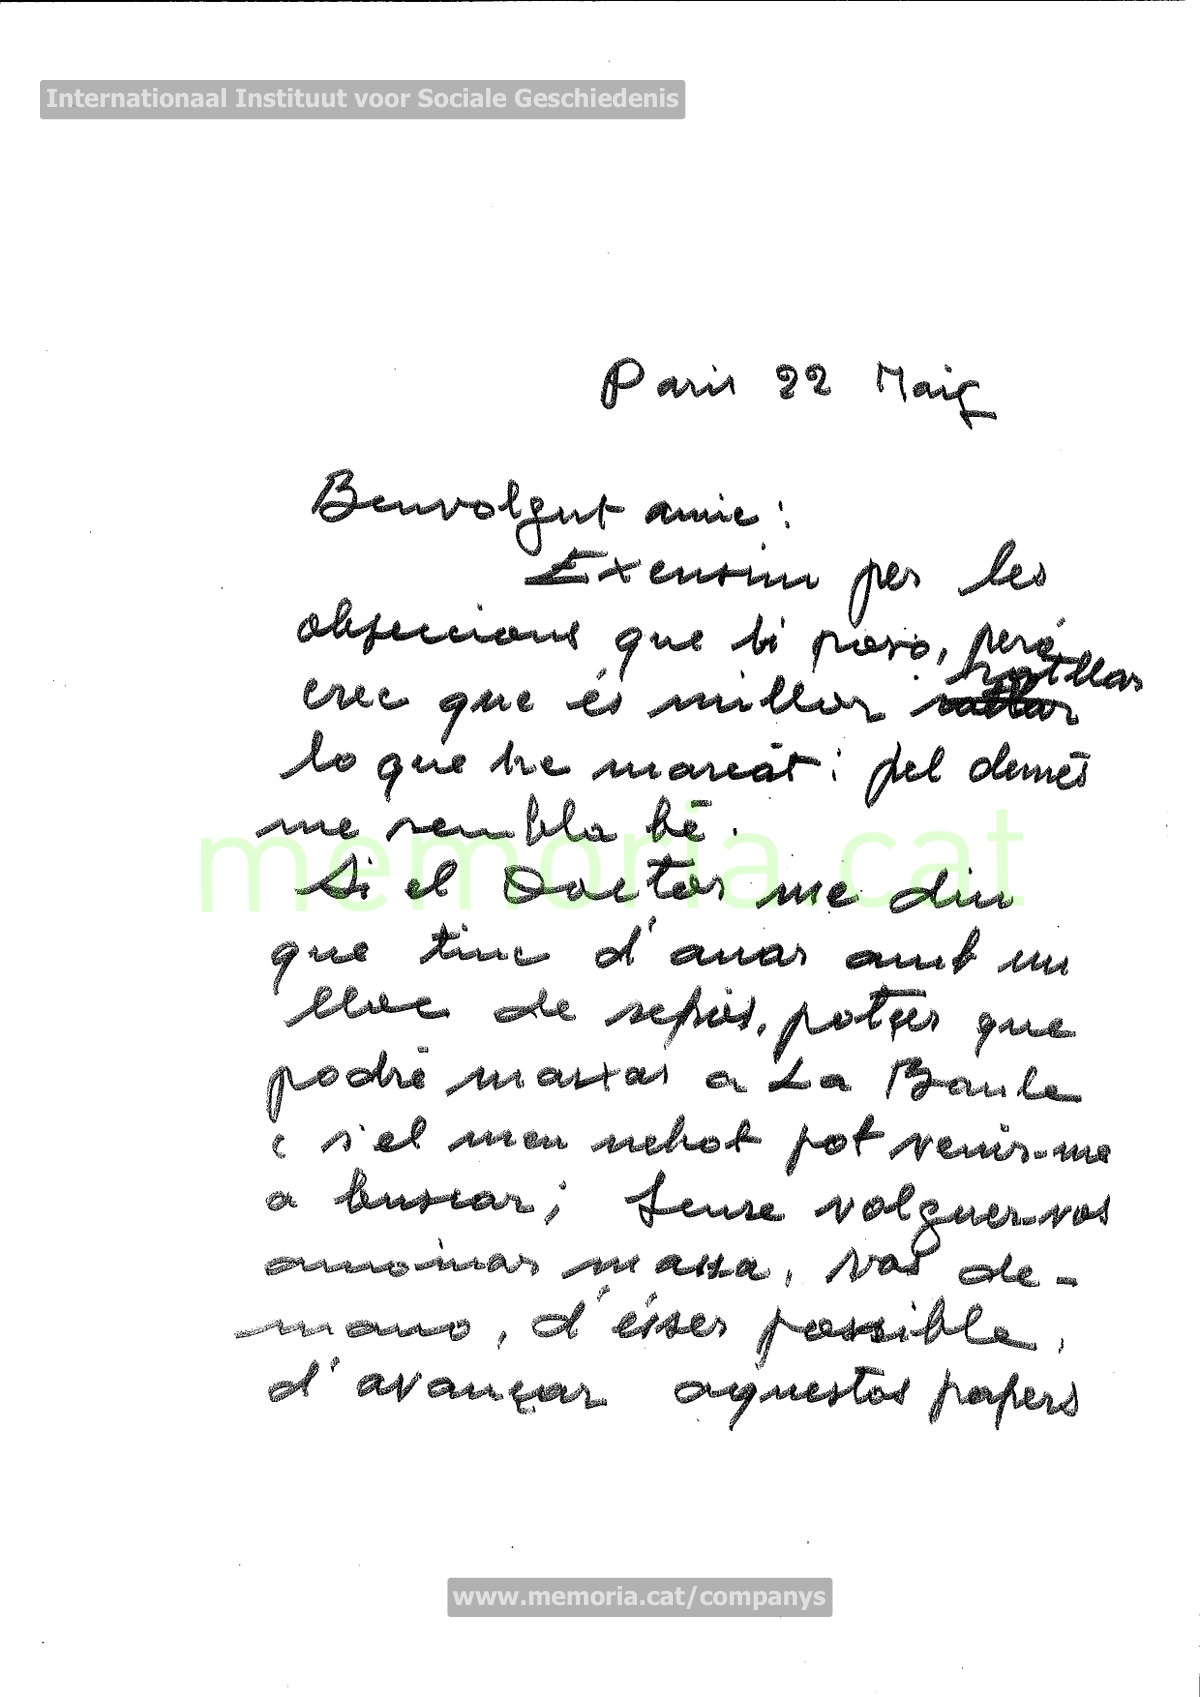 Internationaal Instituut voor Sociale Geschiedenis
Paris 22 Maig
Benvolgut amic:
per les
objeccions que hi poso, però
crec que és millor
lo que he marcat: pel demés
me sembla bé.
Si el Doctor me diu
que tinc d'anar amb un
lloc de repòs, potser que
podré marxar a La Baule
i s'el meu nebot pot venir-me
a buscar; Sense volguer-vos
amoinar massa, vos de-
mano, d'ésser possible,
d'avançar aquestos papers
memoria.cat
www.memoria.cat/companys